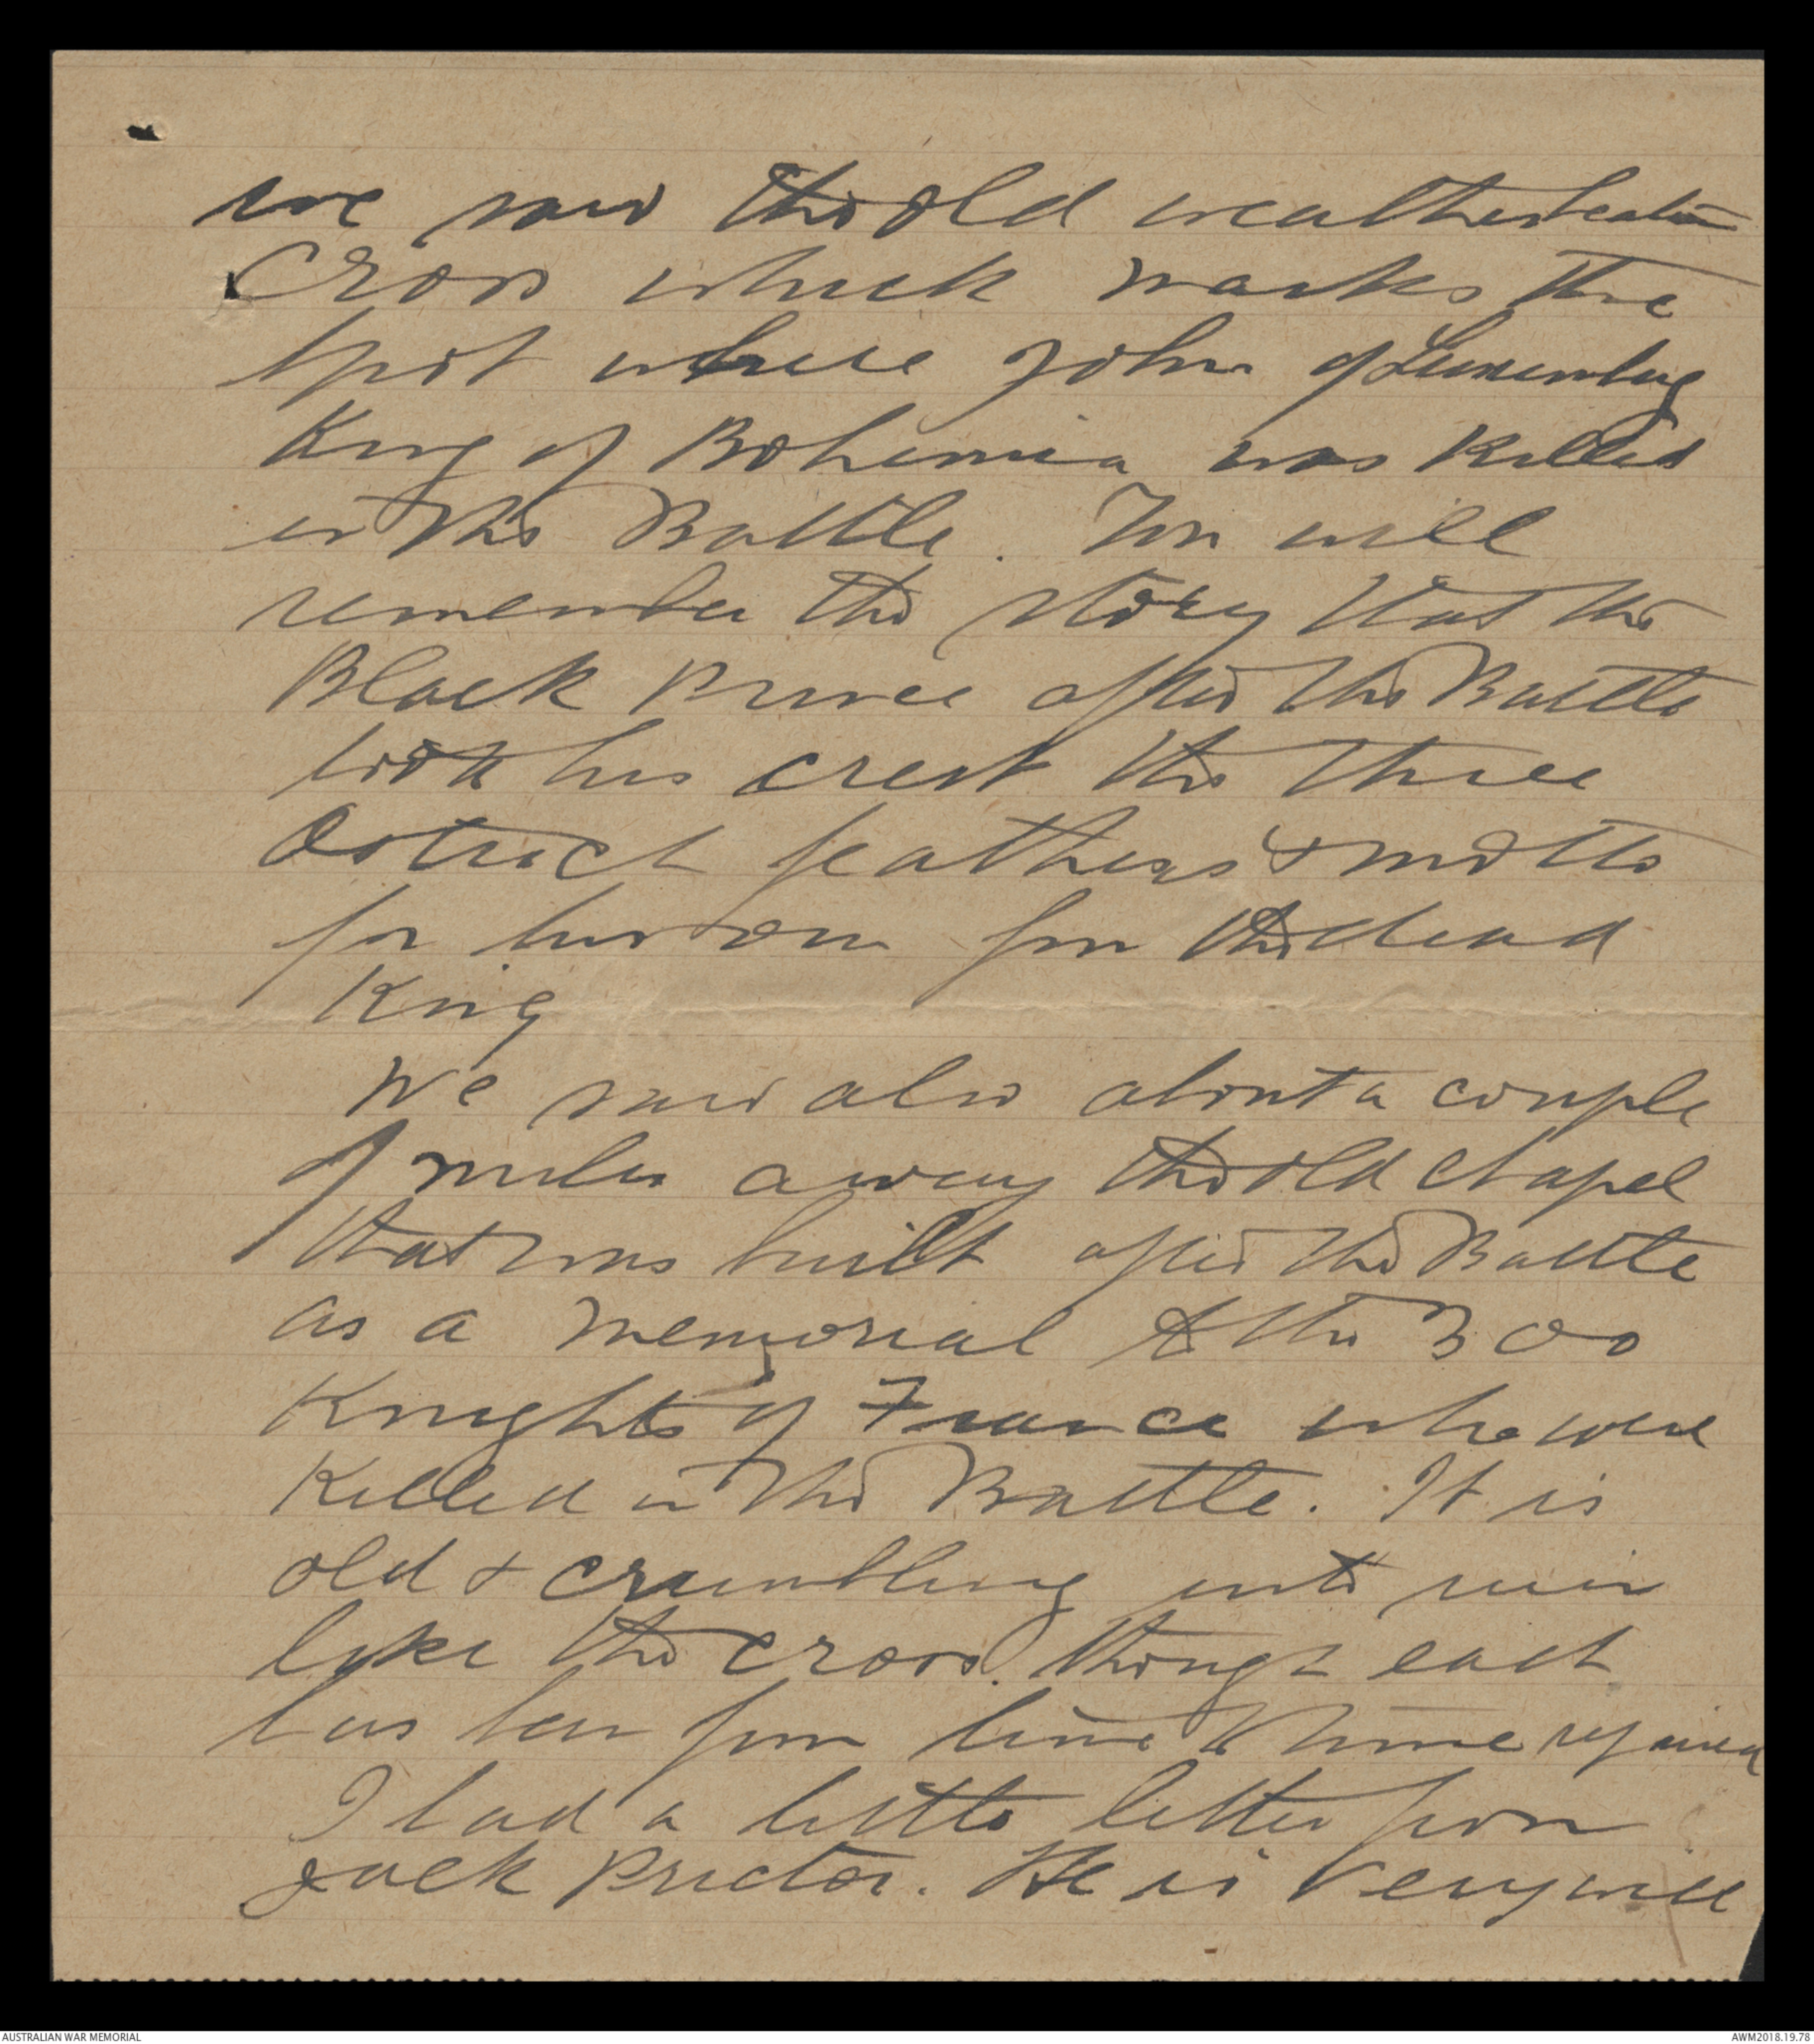 we saw the old weatherbeaten
Cross which marks the
spot where John of Luxemburg
King of Bohemia was killed
in the Battle. You will
remember the story that the
Black Prince after the Battle
took his crest the three
Ostrich feathers & motto
for his own from the dead
King
We saw also about a couple
of miles away the old chapel
that was built after the Battle
as a memorial to the 300
Knights of France who were
Killed in the Battle. It is
old & crumbling into ruin
like the cross. though each
has been from time to time repaired
I had a little letter from
Jack Proctor. He is very well
AUSTRALIAN WAR MEMORIAL
AWM2018.19.78